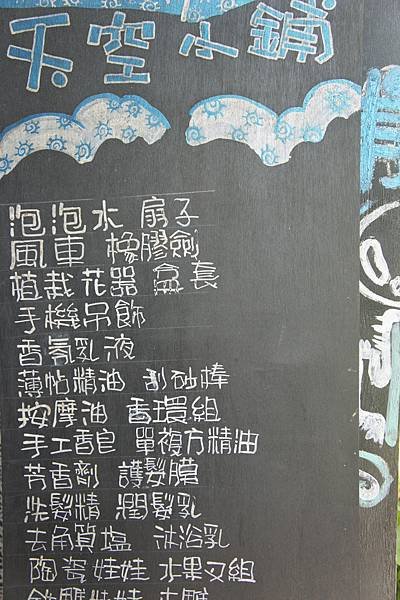 天空小鋪
泡泡水 扇子
風車 橡膠劍
植栽花器 盒套
手機吊飾
香氛乳液
薄帖精油 刮砂棒
按摩油 香環組
手工香皂 單複方精油
芳香劑 護髮膜
洗髮精 潤髮乳
去角質鹽 沐浴乳
陶瓷娃娃 水果叉組